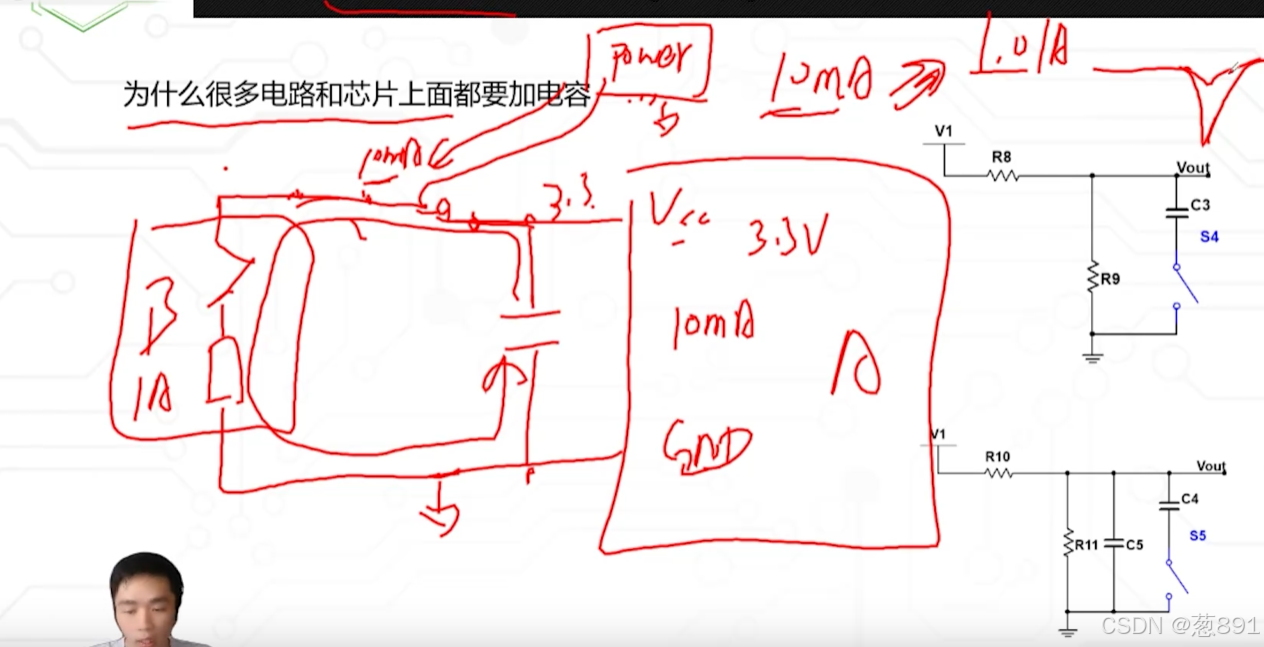 Power
10mA
1.01A
为什么很多电路和芯片上面都要加电容
10mA
3.3
V1
R8
Vout
C3
S4
R9
Vcc
3.3V
10mA
A
GND
B
1A
V1
R10
Vout
C4
S5
R11
C5
CSDN @葱891